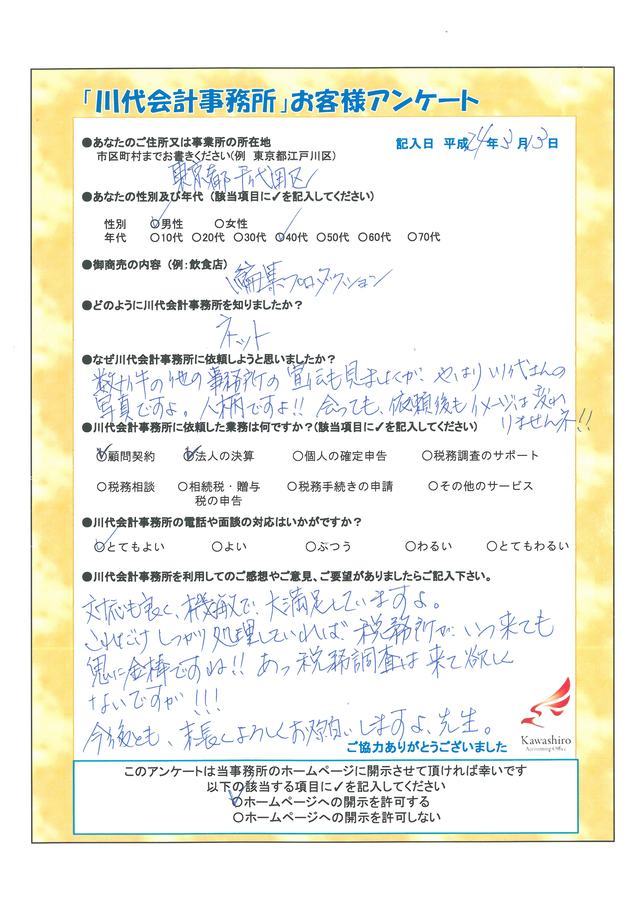 「川代会計事務所」お客様アンケート
●あなたのご住所又は事業所の所在地
記入日 平成24年3月13日
市区町村までお書きください(例 東京都江戸川区)
東京都千代田区
●あなたの性別及び年代 (該当項目に✓を記入してください)
性別 ○男性 ○女性
年代 ○10代 ○20代 ○30代 ○40代 ○50代 ○60代 ○70代
●御商売の内容 (例:飲食店)
編集プロダクション
●どのように川代会計事務所を知りましたか?
ネット
●なぜ川代会計事務所に依頼しようと思いましたか?
数か件の他の事務所の宣伝も見ましたが、やはり川代さんの
写真ですよ。人柄ですよ!! 会っても、依頼後もイメージは変わ
りませんネ!!
●川代会計事務所に依頼した業務は何ですか?(該当項目に✓を記入してください)
○顧問契約 ○法人の決算 ○個人の確定申告 ○税務調査のサポート
○税務相談 ○相続税・贈与税の申告 ○税務手続きの申請 ○その他のサービス
●川代会計事務所の電話や面談の対応はいかがですか?
○とてもよい ○よい ○ぶつう ○わるい ○とてもわるい
●川代会計事務所を利用してのご感想やご意見、ご要望がありましたらご記入下さい。
対応も良く、機敏で、大満足していますよ。
これだけしっかり処理していれば、税務所が、いつ来ても
鬼に金棒ですね!! あっ税務調査は来て欲しく
ないですが!!!
今後とも、末長くよろしくお願いしますよ、先生。
Kawashiro
Accounting Office
ご協力ありがとうございました
このアンケートは当事務所のホームページに開示させて頂ければ幸いです
以下の該当する項目に✓を記入してください
○ホームページへの開示を許可する
○ホームページへの開示を許可しない